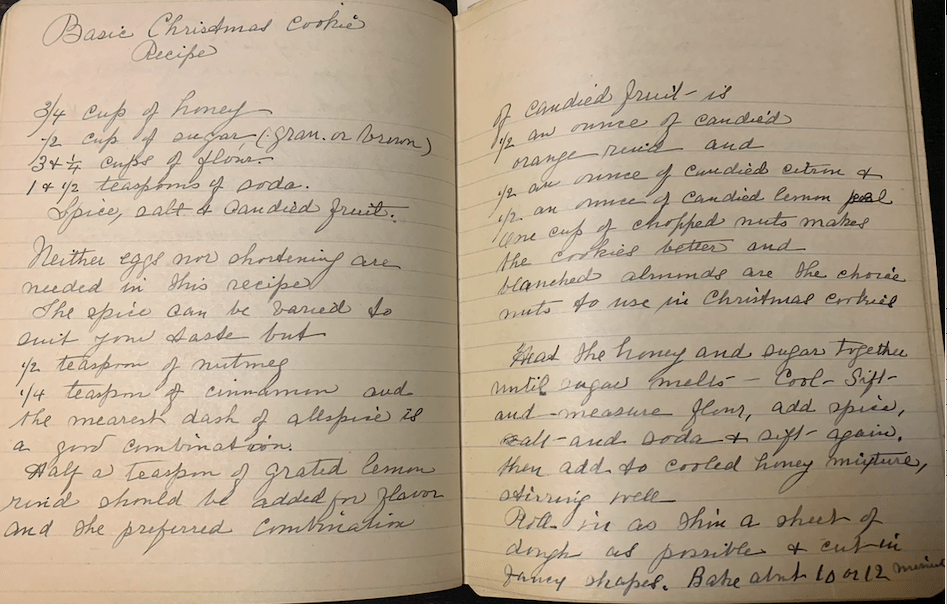 Basic Christmas Cookie
Recipe
3/4 cup of honey
1/2 cup of sugar, (gran. or brown)
3 & 1/4 cups of flour.
1 & 1/2 teaspoons of soda.
Spice, salt & candied fruit.
Neither eggs nor shortening are
needed in this recipe
The spice can be varied to
suit your taste but
1/2 teaspoon of nutmeg
1/4 teaspn of cinnamon and
the mearest dash of allspice is
a good combination.
Half a teaspn of grated lemon
rind should be added for flavor
and the preferred combination
of candied fruit - is
1/2 an ounce of candied
orange reind and
1/2 an ounce of candied citron &
1/2 an ounce of candied lemon peel
One cup of chopped nuts makes
the cookies better and
blanched almonds are the choice
nuts to use in Christmas cookies
Heat the honey and sugar together
until sugar melts - Cool - Sift -
and - measure flour, add spice,
salt - and soda & sift - again.
then add to cooled honey mixture,
stirring well
Roll in as thin a sheet of
dough as possible & cut in
fancy shapes. Bake abut 10 or 12